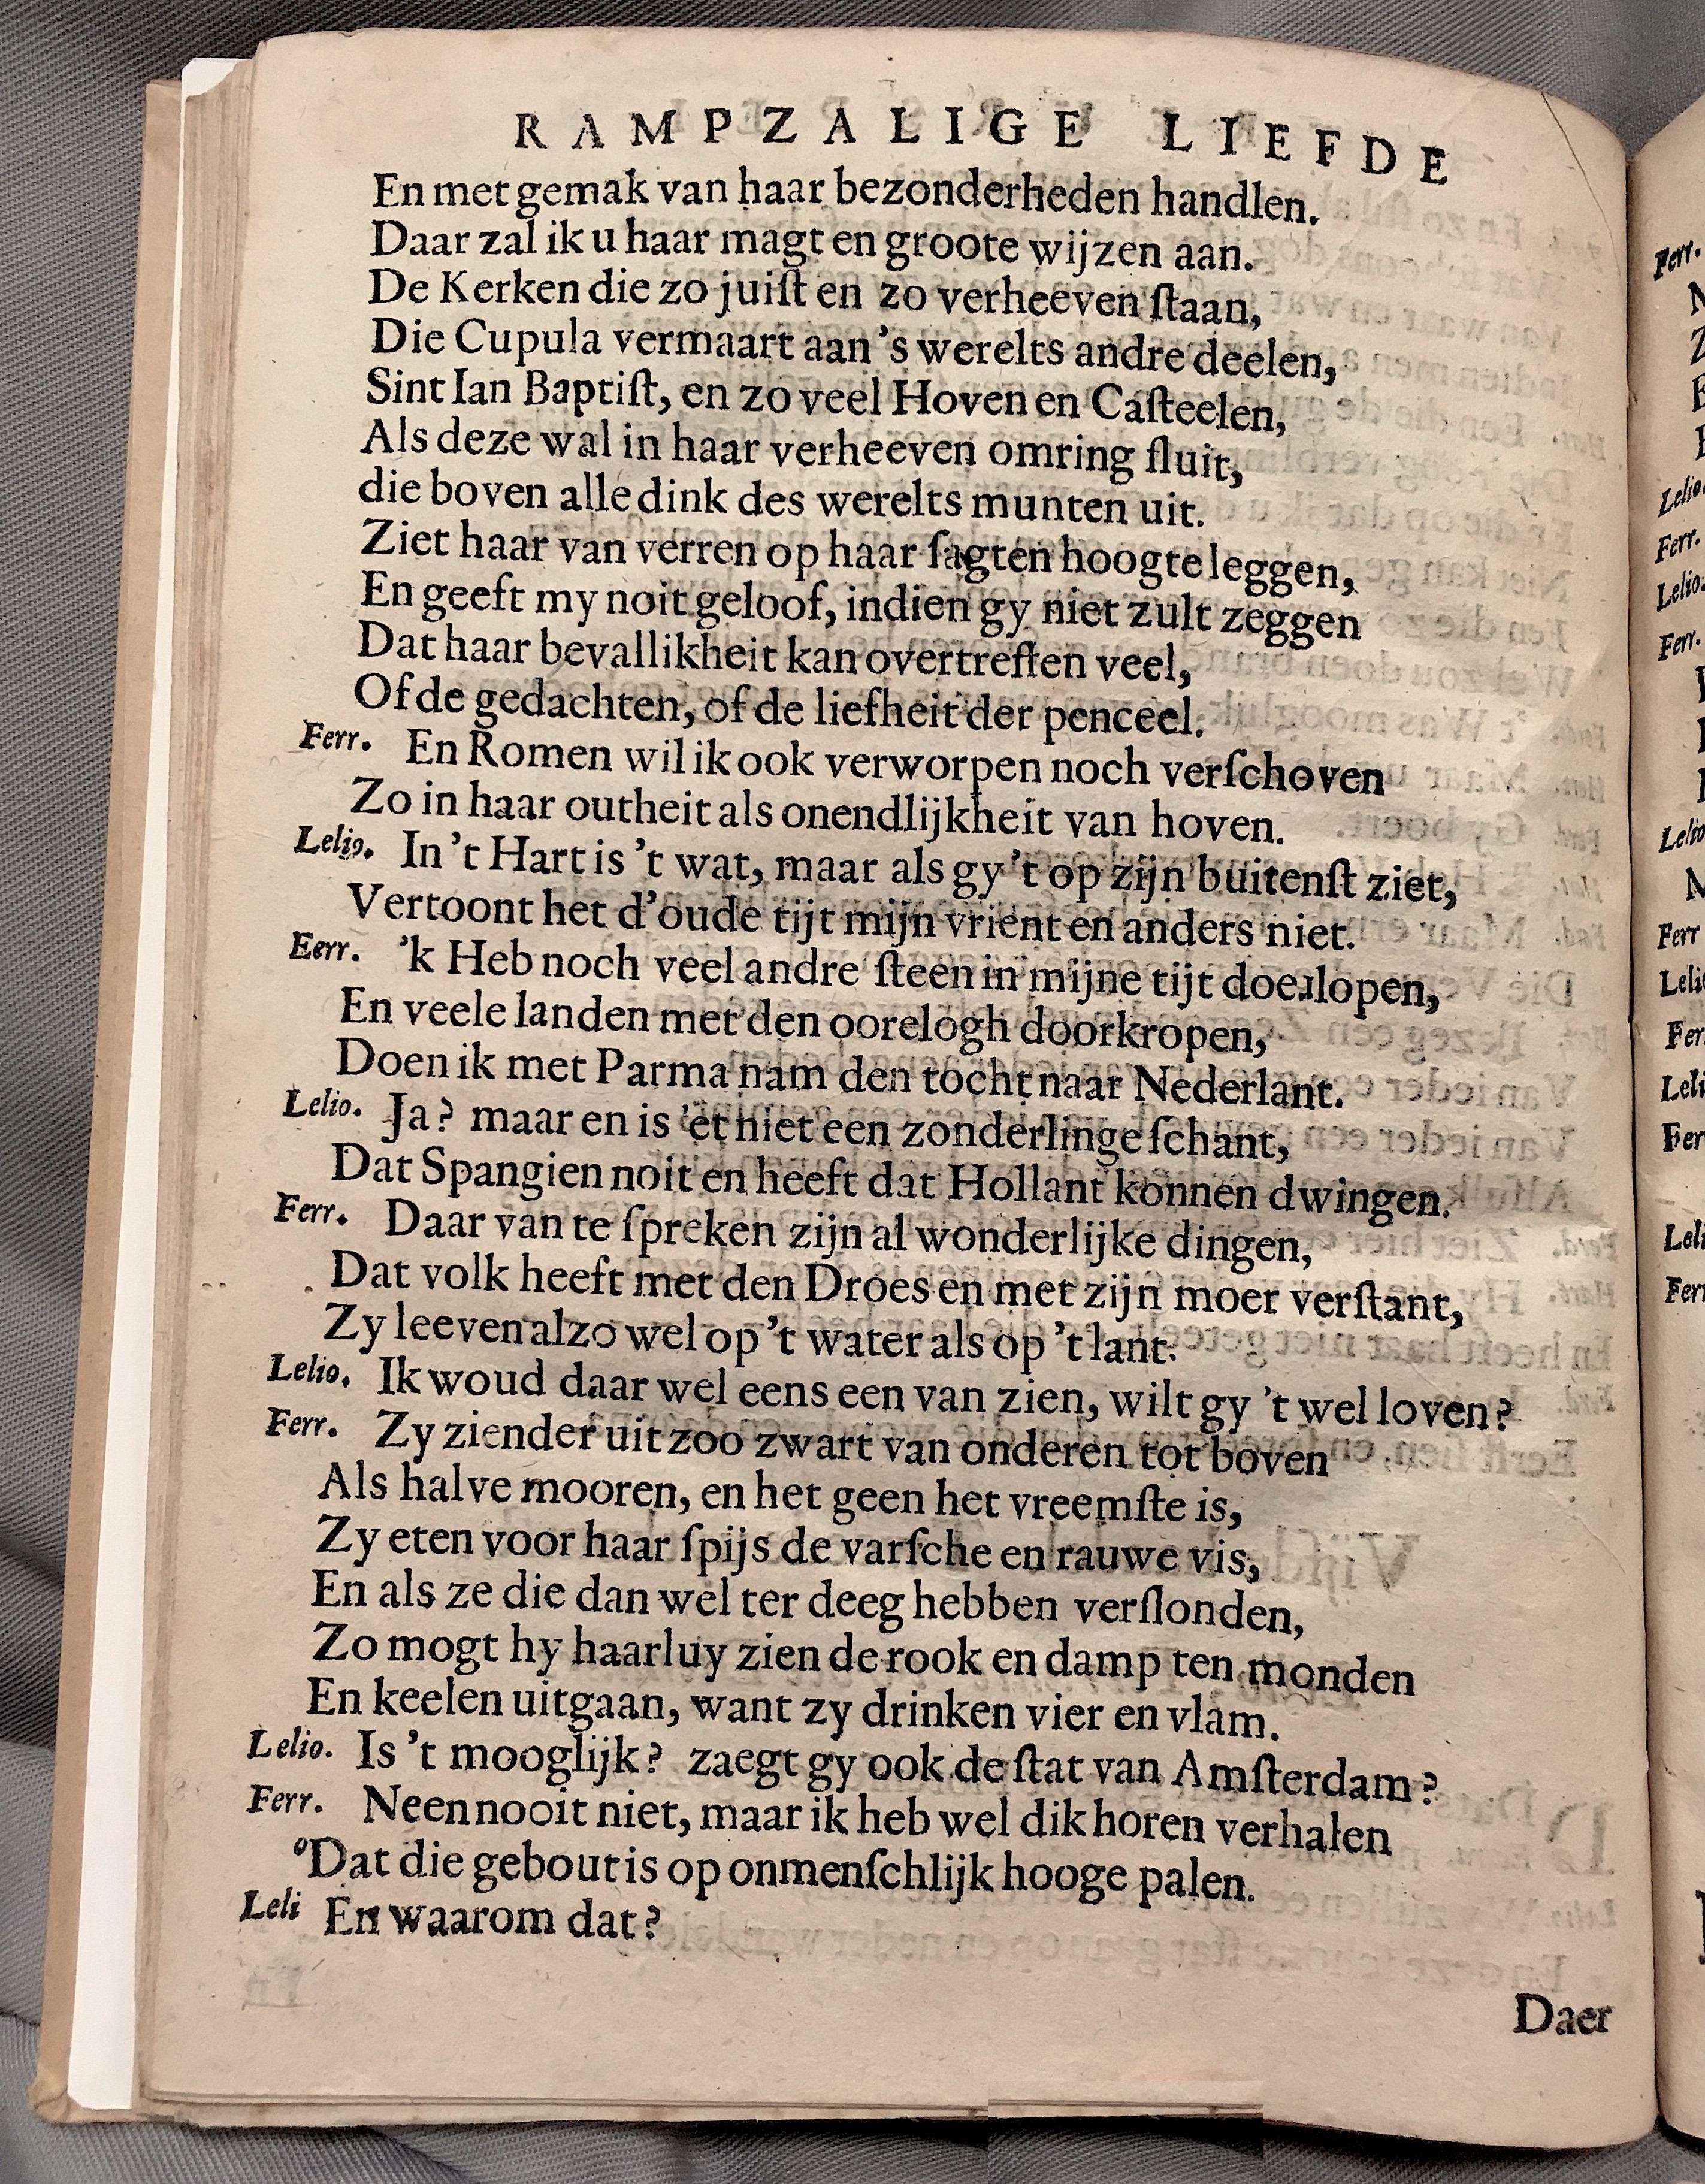 RAMPZALIGE LIEFDE
En met gemak van haar bezonderheden handlen.
Daar zal ik u haar magt en groote wijzen aan.
De Kerken die zo juiſt en zo verheeven ſtaan,
Die Cupula vermaart aan 's werelts andre deelen,
Sint Ian Baptiſt, en zo veel Hoven en Caſteelen,
Als deze wal in haar verheeven omring ſluit,
die boven alle dink des werelts munten uit.
Ziet haar van verren op haar ſagten hoogte leggen,
En geeft my noit geloof, indien gy niet zult zeggen
Dat haar bevallikheit kan overtreffen veel,
Of de gedachten, of de liefheit der penceel.
Ferr. En Romen wil ik ook verworpen noch verſchoven
Zo in haar outheit als onendlijkheit van hoven.
Lelio. In 't Hart is 't wat, maar als gy 't op zijn buitenſt ziet,
Vertoont het d'oude tijt mijn vrient en anders niet.
Eerr. 'k Heb noch veel andre ſteen in mijne tijt doe lopen,
En veele landen met den oorelogh doorkropen,
Doen ik met Parma nam den tocht naar Nederlant.
Lelio. Ja? maar en is 'et niet een zonderlinge ſchant,
Dat Spangien noit en heeft dat Hollant konnen dwingen.
Ferr. Daar van te ſpreken zijn al wonderlijke dingen,
Dat volk heeft met den Droes en met zijn moer verſtant,
Zy leeven alzo wel op 't water als op 't lant.
Lelio. Ik woud daar wel eens een van zien, wilt gy 't wel loven?
Ferr. Zy ziender uit zoo zwart van onderen tot boven
Als halve mooren, en het geen het vreemſte is,
Zy eten voor haar ſpijs de varſche en rauwe vis,
En als ze die dan wel ter deeg hebben verſlonden,
Zo mogt hy haarluy zien de rook en damp ten monden
En keelen uitgaan, want zy drinken vier en vlam.
Lelio. Is 't mooglijk? zaegt gy ook de ſtat van Amſterdam?
Ferr. Neen nooit niet, maar ik heb wel dik horen verhalen
Dat die gebout is op onmenſchlijk hooge palen.
Leli En waarom dat?
Daer